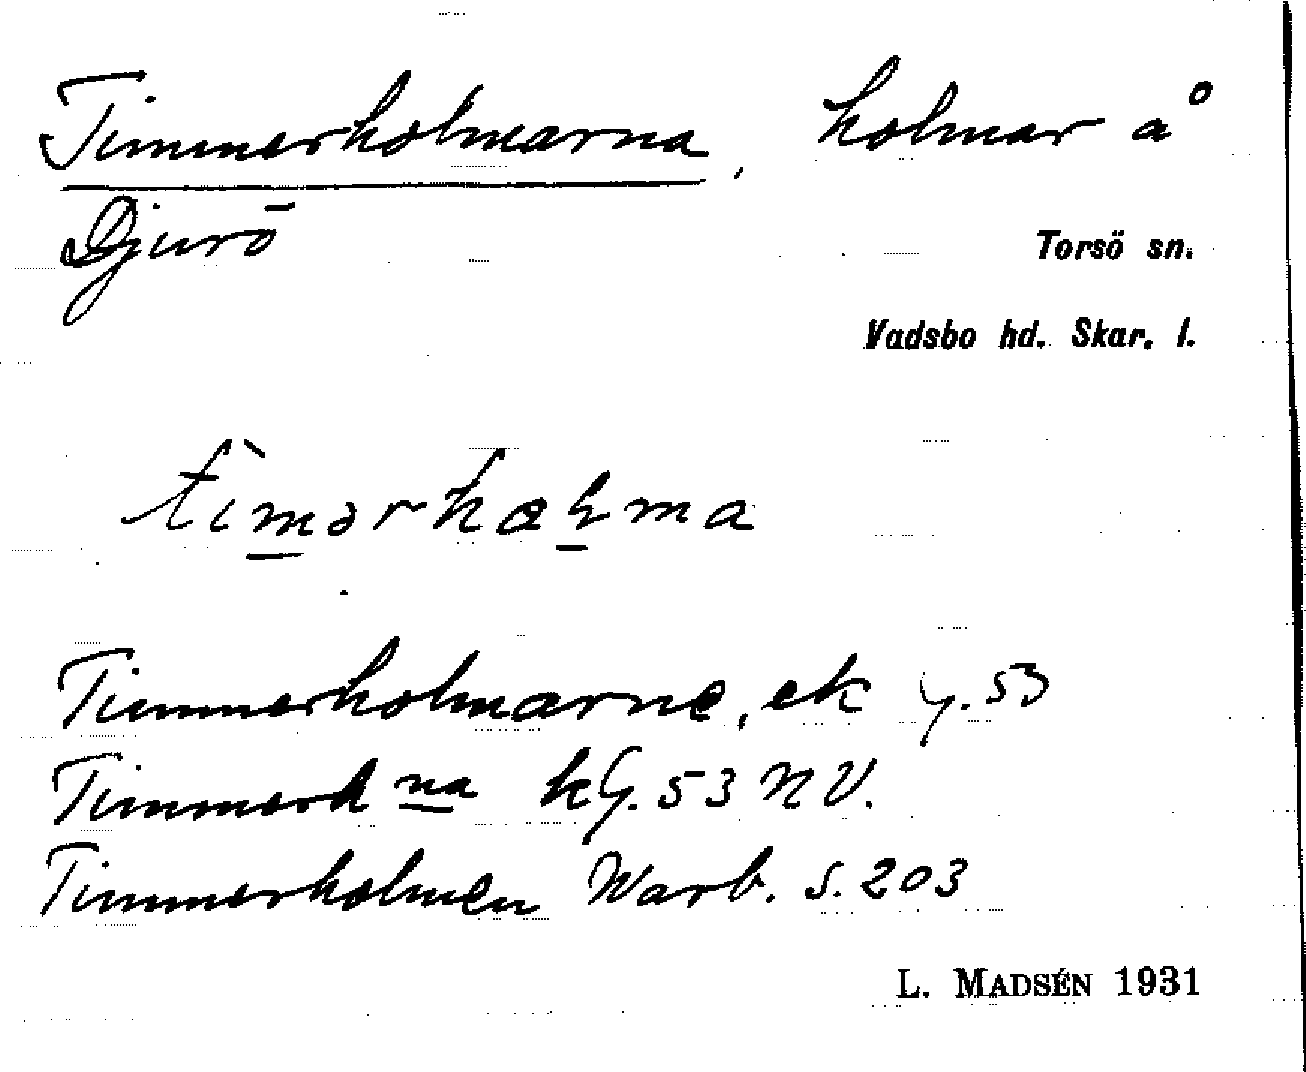 Timmerholmarna, holmar å
Djurö
Torsö sn.
Vadsbo hd. Skar. l.
Timmerholmarne, ek
Timmerh na
Timmerholmen Warb. s. 203
L. MADSÉN 1931